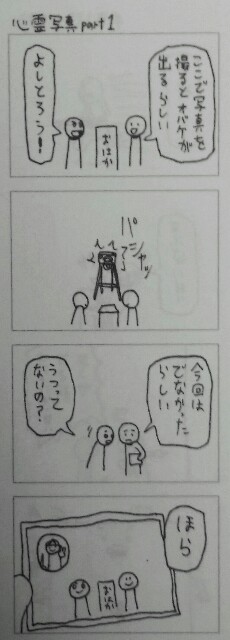 心霊写真part1
ここで写真を
撮るとオバケが
出るらしい
おはか
よしとろう!
パシャッ
今回は
でなかった
らしい
うつって
ないの?
ほら
おはか